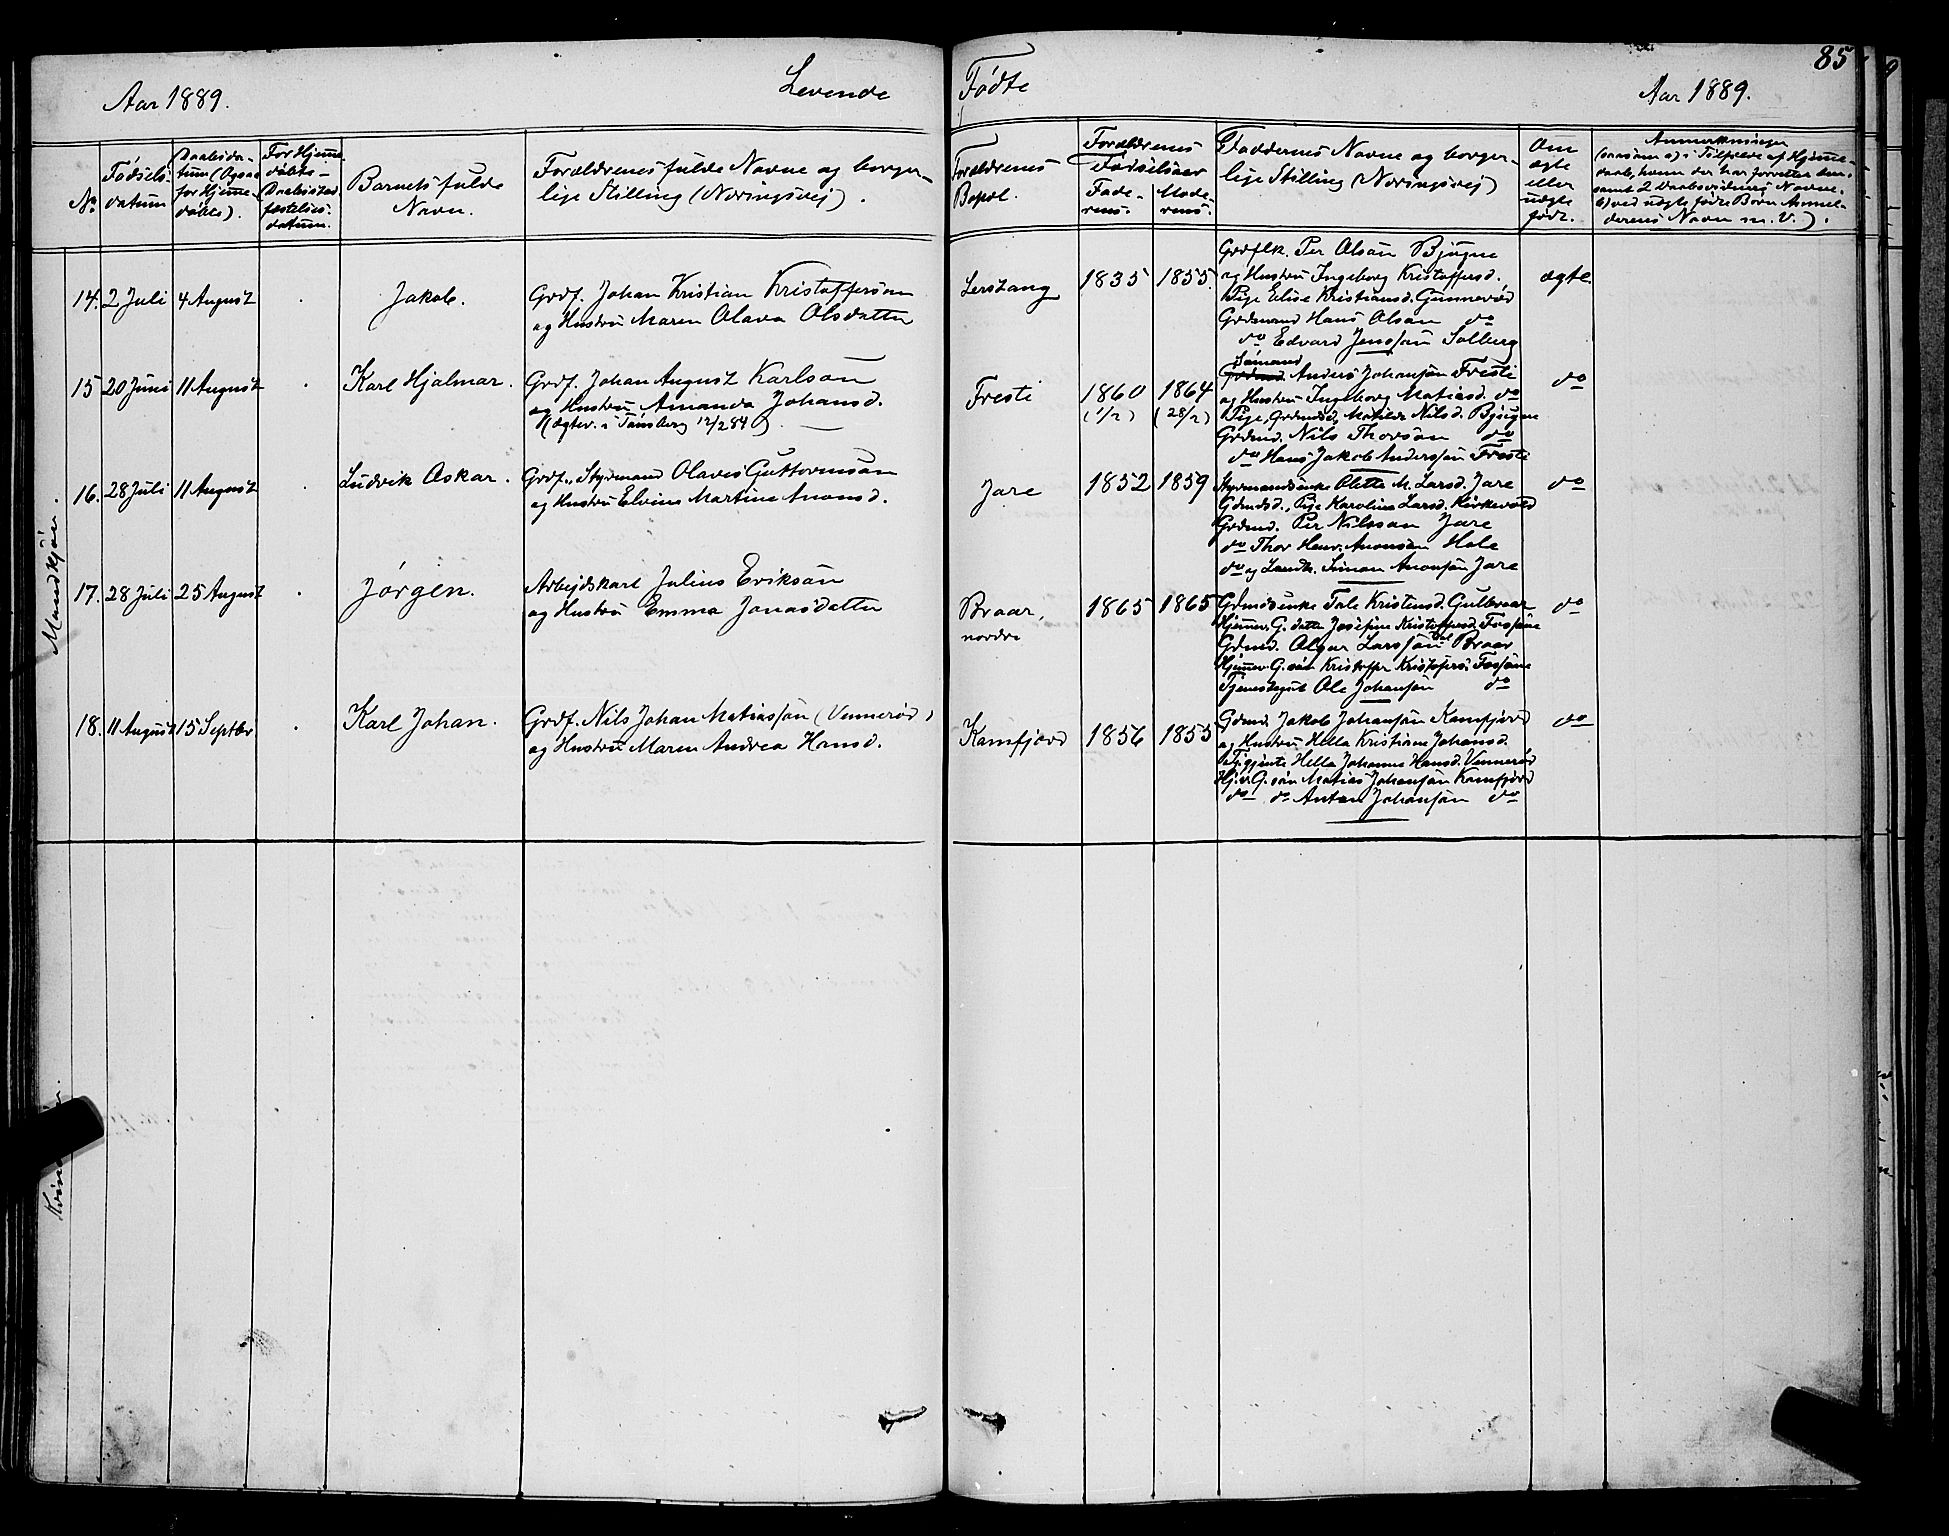 85
Aar 1889.
Levende
Fødte
Aar 1889.
No
Fødsels-
datum
Daabsda-
tum (Ogsaa
for Hjemme-
døbte).
For Hjemme-
døbte
Daabsstad-
fæstelses-
datum.
Barnets fulde
Navn.
Forældrenes fulde Navne og borger-
lige Stilling (Næringsvej).
Forældrenes
Bopæl.
Forældrenes
Fødselsaar
Fade-
rens.
Mode-
rens.
Faddernes Navne og borger-
lige Stilling (Næringsvej)
Om
ægte
eller
uægte
født.
Anmærkninger
(saasom a) i Tilfælde af Hjemme-
daab, hvem der har forrettet den
samt 2 Daabsvidners Navne.
b) ved uægte fødte Børn Anmel-
derens Navn m. V.).
Mandkjøn.
14. 2 Juli 4 August
Jakob.
Grdf. Johan Kristian Kristoffersøn
og Hustru Maren Olava Olsdatter
Lerstang 1835 1855.
Grdflk. Per Olsøn Bjugne
og Hustru Ingeborg Kristoffersd.
Pige Elise Kristiansd. Gunnerød
Grdmand Hans Olsøn do
do Edvard Jenssøn Solberg
ægte
15 20 Juni 11 August
Karl Hjalmar.
Grdf. Johan August Karlsøn
og Hustru Amanda Johansd.
(Ægtev. i Tønsberg 12/2 84)
Fresti 1860 1864
(1/2) (28/2)
Sømand
Anders Johansøn Fresti
og Hustru Ingeborg Matiasd. do
Pige, Grdmdsd. Matilde Nilsd. Bjugne
Grdmd. Nils Thorsøn do
do Hans Jakob Anderssøn Fresti
do
16. 28 Juli 11 August
Ludvik Oskar.
Grdf., Styrmand Olaves Guttormsøn
og Hustru Elvine Martine Anonsd.
Jare 1852 1859
Styrmandsenke Olette M. Larsd. Jare
Gdmdsd., Pige Karoline Larsd. Kirkevold
Grdmd. Per Nilssøn Jare
do Thor Henr. Anonsøn Hole
do og Landh. Simon Anonsøn Jare
do
17. 28 Juli 25 August
Jørgen.
Arbejdskarl Julius Eriksøn
og Hustru Emma Jonasdatter
Braar,
nordre
1865 1865
Gdmdsenke Tale Kristensd. Gulbraar
Hjemmev. G. datter Josefine Kristoffersd. Fossane
Gdmd. Olgar Larssøn Braar
Hjemmev. G. søn Kristoffer Kristoffers. Fossane
Tjenestegut Ole Johansøn do
do
18. 11 August 15 Septbr
Karl Johan.
Grdf. Nils Johan Matiassøn (Vennerød)
og Hustru Maren Andrea Hansd.
Kamfjord 1856 1855
Gdmd. Jakob Johansøn Kamfjord
og Hustru Hella Kristiane Johansd.
Tj.gjente Hella Johanne Hansd. Vennerød
Hj.v. G. søn Matias Johansøn Kamfjord
do do Anton Johansøn do
do